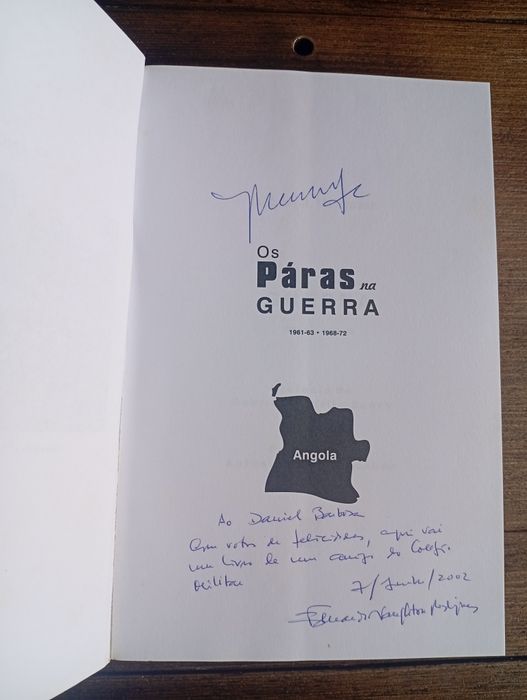 Os
Páras na
GUERRA
1961-63 • 1968-72
Angola
Ao Daniel Barbosa
Com votos de felicidades, aqui vai
um livro de um amigo do Colégio
Militar
7/Junho/2002